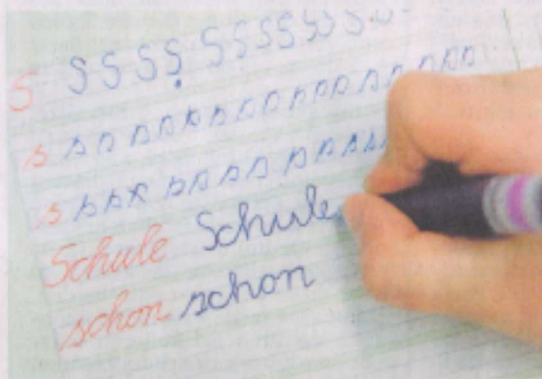 S S S S S S S S S S S S
s s s s s s s s s s s s s s s
s s s s s s s s s s s s s
Schule Schule
schon schon